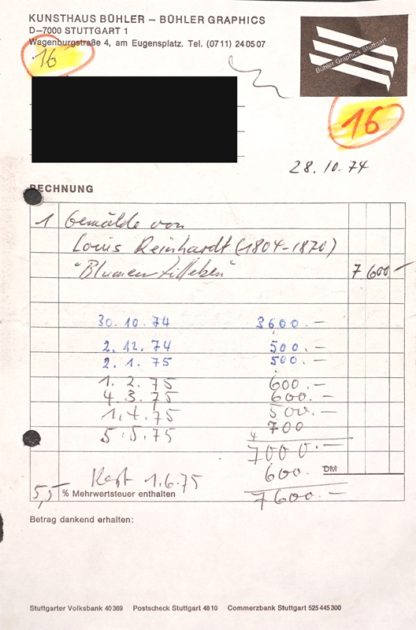 KUNSTHAUS BÜHLER – BÜHLER GRAPHICS
D–7000 STUTTGART 1
Wagenburgstraße 4, am Eugensplatz. Tel. (0711) 240507
Bühler Graphics Stuttgart
16
16
28.10.74
RECHNUNG
1 Gemälde von
Louis Reinhardt (1804–1870)
"Blumenstilleben" 7 600 –
30.10.74 3600.–
2.12.74 500.–
2.1.75 500.–
1.2.75 600.–
4.3.75 600.–
1.4.75 500.–
5.5.75 700
7000.–
Rest 1.6.75 600. DM
5,5 % Mehrwertsteuer enthalten 7600.–
Betrag dankend erhalten:
Stuttgarter Volksbank 40369 Postscheck Stuttgart 4010 Commerzbank Stuttgart 525445300